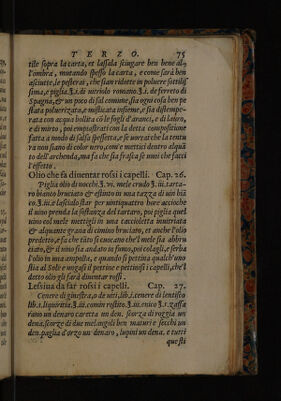 TERZO. 75
tile sopra la carta, et lassala sciugare ben bene al-
l'ombra, mutando spesso la carta, e come sarà ben
asciutto, le pesterai, che sian ridutte in poluere sottilis
sima, e piglia ʒ.i. di nitriolo romano ʒ.i. de ferreto di
Spagna, & un poco di sal comune, sia ogni cosa ben pe
stata poluerizata, e mistiata insieme, e sia distempe-
rata con acqua bollita cō le fogli d'aranci, e di lauro,
e di mirto, poi empiastrati con la detta compositione
fatta a modo di salsa spessetta, e se uorrai che la tentu
ra non siano di color nero, con'e mettici dentro alquā
to dell'archenda, ma fa che sia frasca se uuoi che facci
l'effetto.
Olio che fa diuentar rossi i capelli. Cap. 26.
Piglia olio di nocchi ʒ.vi. mele crudo ʒ.iii. tarta-
ro bianco bruciato & estinto in una tazza di uin biā
co ʒ.iii. e lascialo star per uintiquattro hore acciochè
il uino prenda la sostanza del tartaro, poi piglia quel
uino col mele mettegli in una cacciolletta inuitriata
& alquante grana di comino bruciato, et anche l'olio
predetto, e fa che tāto si cuocano che'l mele sia abbru
ciato, & il uino sia andato in fumo, poi colagli, e serba
l'olio in una ampolla, e quando si pettina qualch'uno
stia al Sole e ungasi il pettine e pettinisi i capelli, che'l
detto olio gli farà diuentar rossi.
Lessiua da far rossi i capelli. Cap. 27.
Cenere di ginestra, o de uiti, lib. i. cenere di lentisco
lib. i. liquiritia ʒ.iii. comin rosisto ʒ.iii. enico ʒ.i. zaffa
rano un denaro caretta un den. scorza di roggia un
dena. scorze di due melangoli ben maturi e secchi un
den. paglia d'orzo un denaro, lupini un dena. e tutti
questi